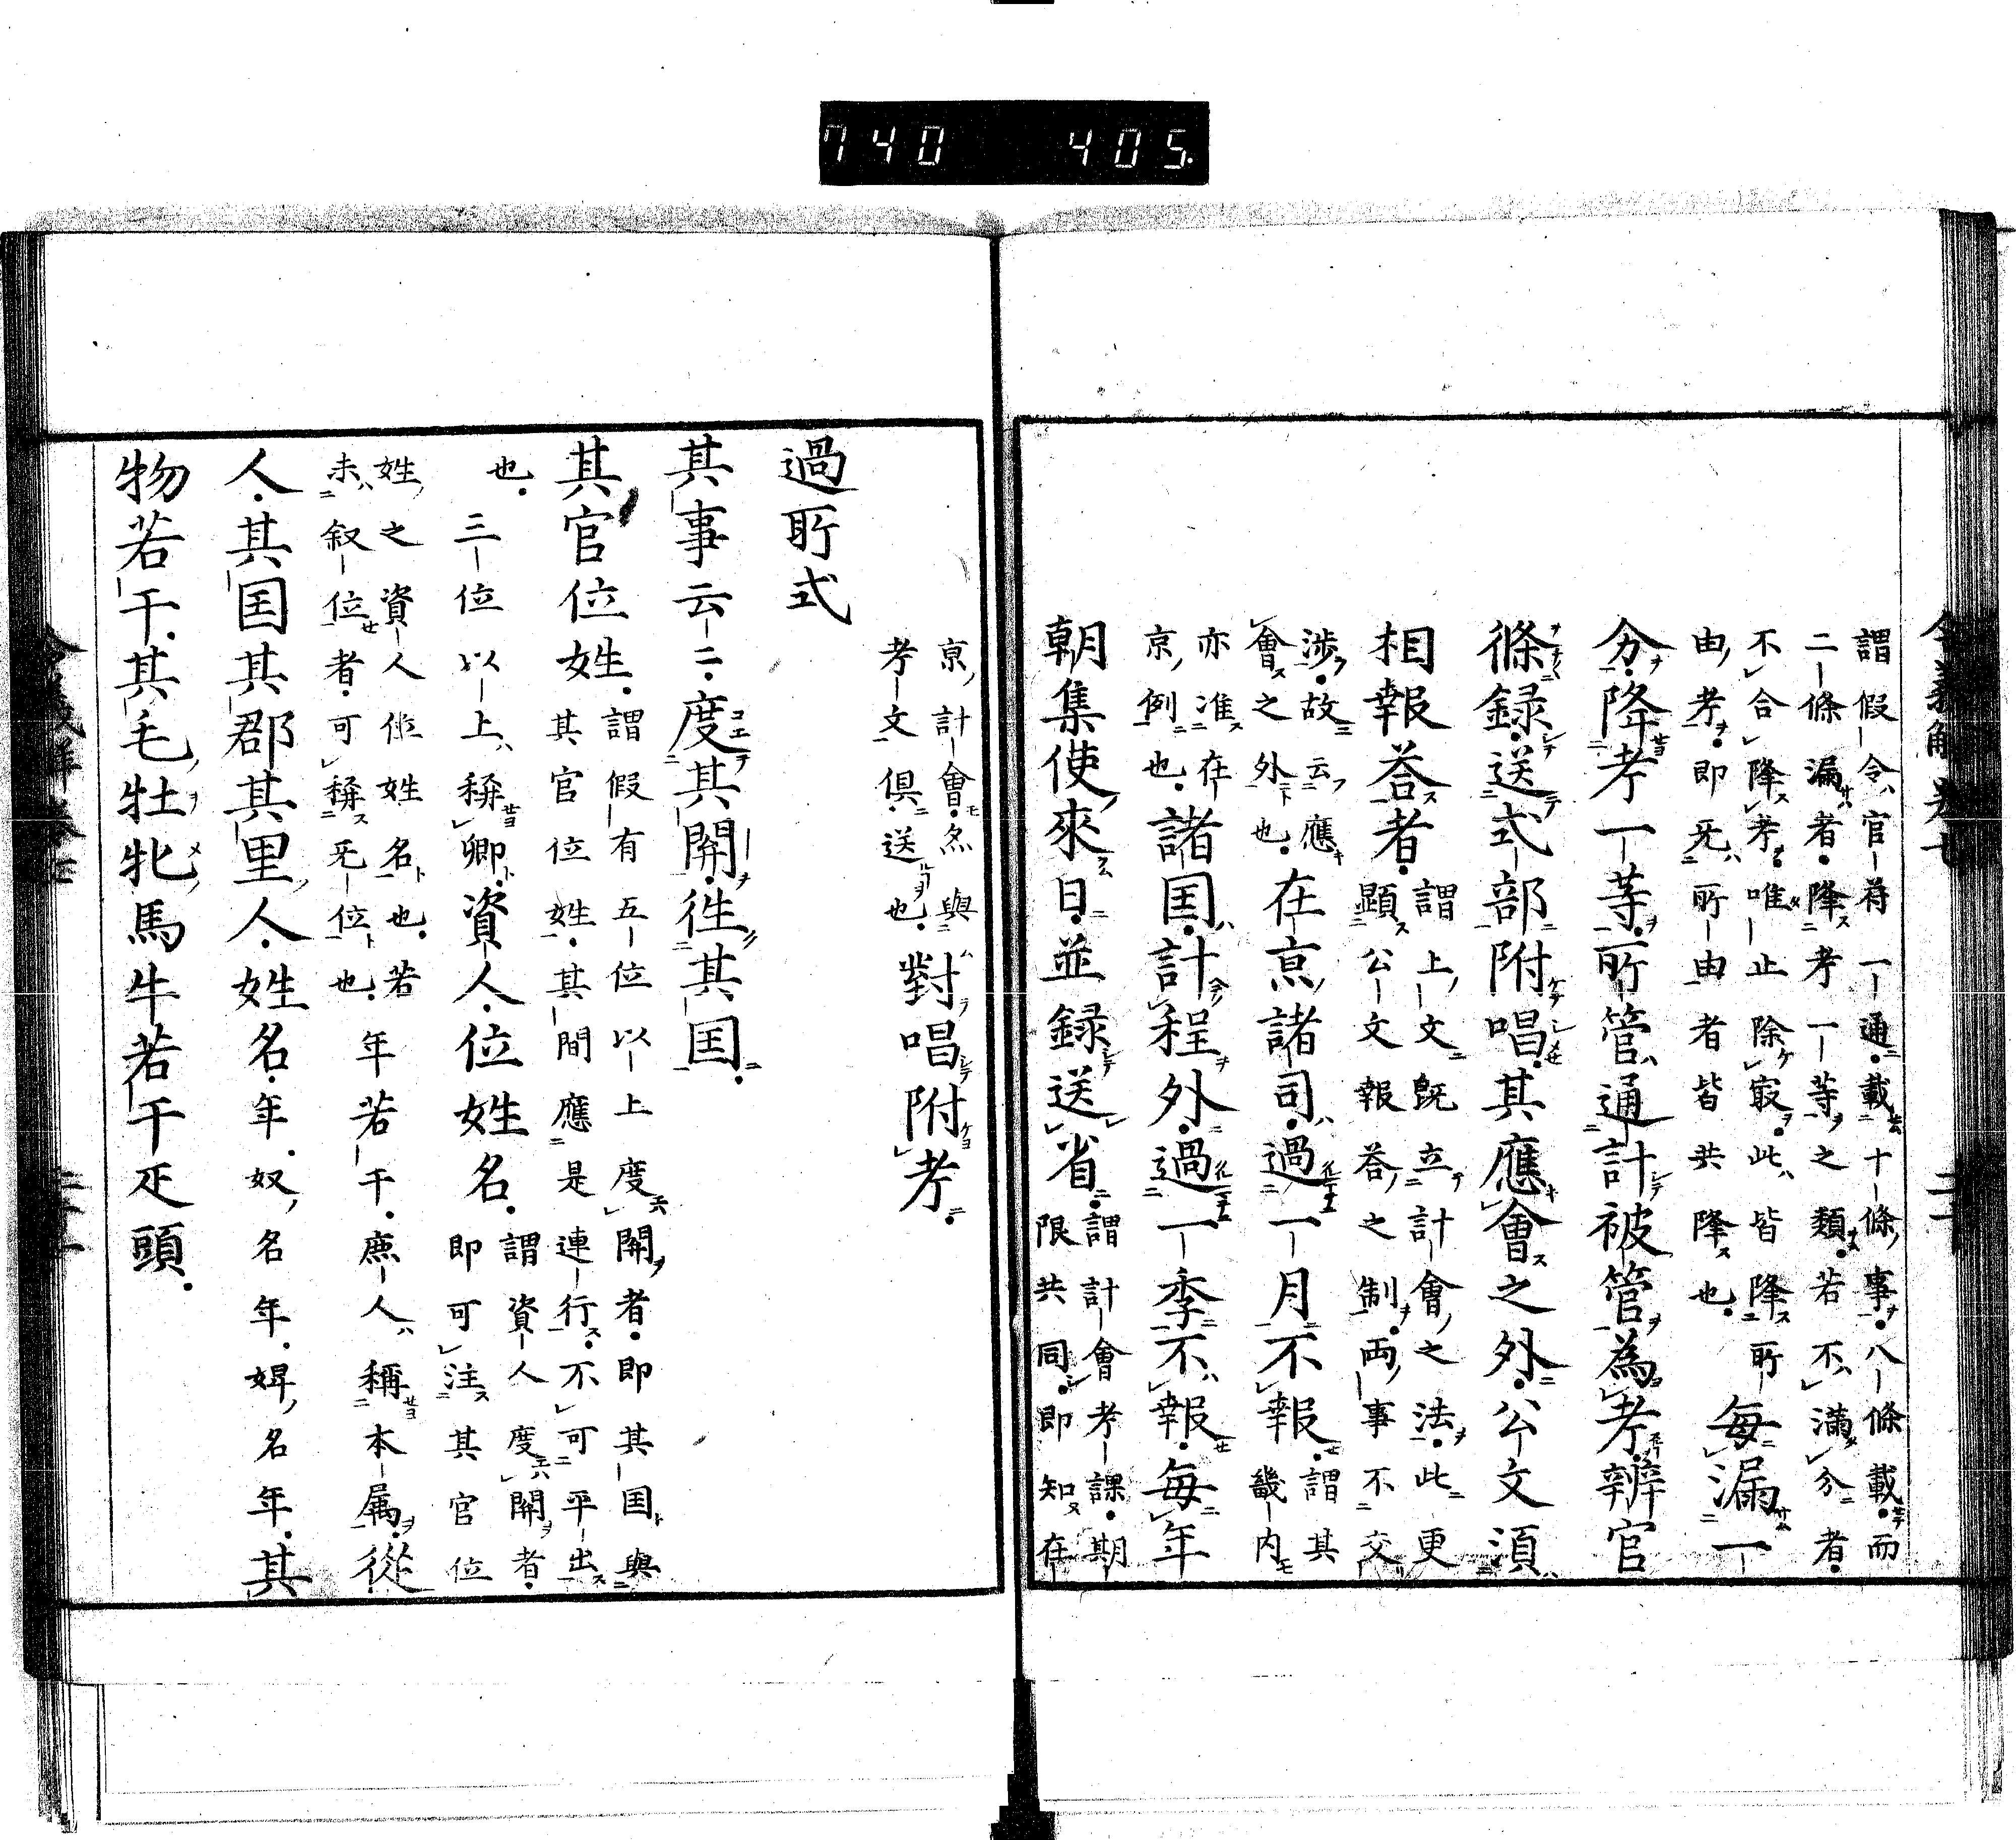 740 405.
謂假令官符一通載十條事八條載而
二條漏者降考一等之類若不滿分者
不合降考唯止除最此皆降所
由考即旡所由者皆共降也
每漏一
分降考一等所管通計被管為考辨官
條録送式部附唱其應會之外公文湏
相報荅者
謂上文既立計會之法此更
顯公文報荅之制兩事不交
渉故云應
會之外也
在京諸司過一月不報
謂其
畿内
亦准在
京例也
諸国計程外過一季不報每年
朝集使來日並録送省
謂計會考課期
限共同即知在
京計會忽與
考文俱送也
對唱附考
過所式
其事云二度其関徃其国
其官位姓
謂假有五位以上度関者即其国與
其官位姓其間應是連行不可平出
也
三位以上稱卿
資人位姓名
謂資人度関者
即可注其官位
姓之資人位姓名也若
未叙位者可稱旡位也
年若干庶人稱本属從
人其国其郡其里人姓名年奴名年婢名年其
物若干其毛牡牝馬牛若干疋頭